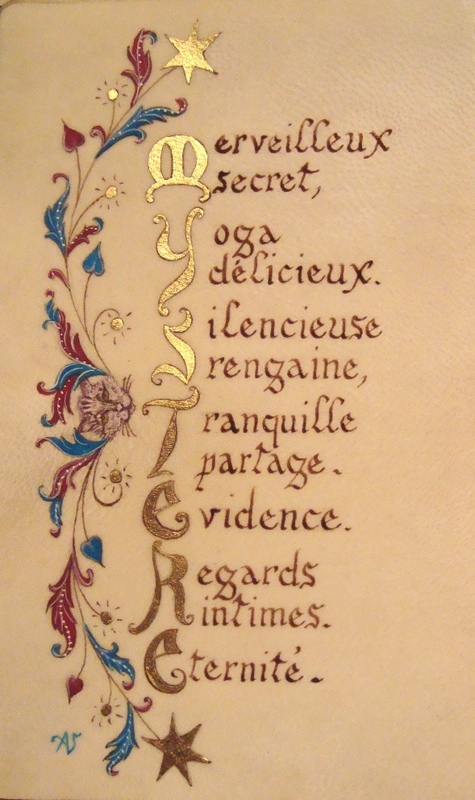 Merveilleux
secret,
Yoga
délicieux.
Silencieuse
rengaine,
Tranquille
partage.
Evidence.
Regards
intimes.
Eternité.
AS